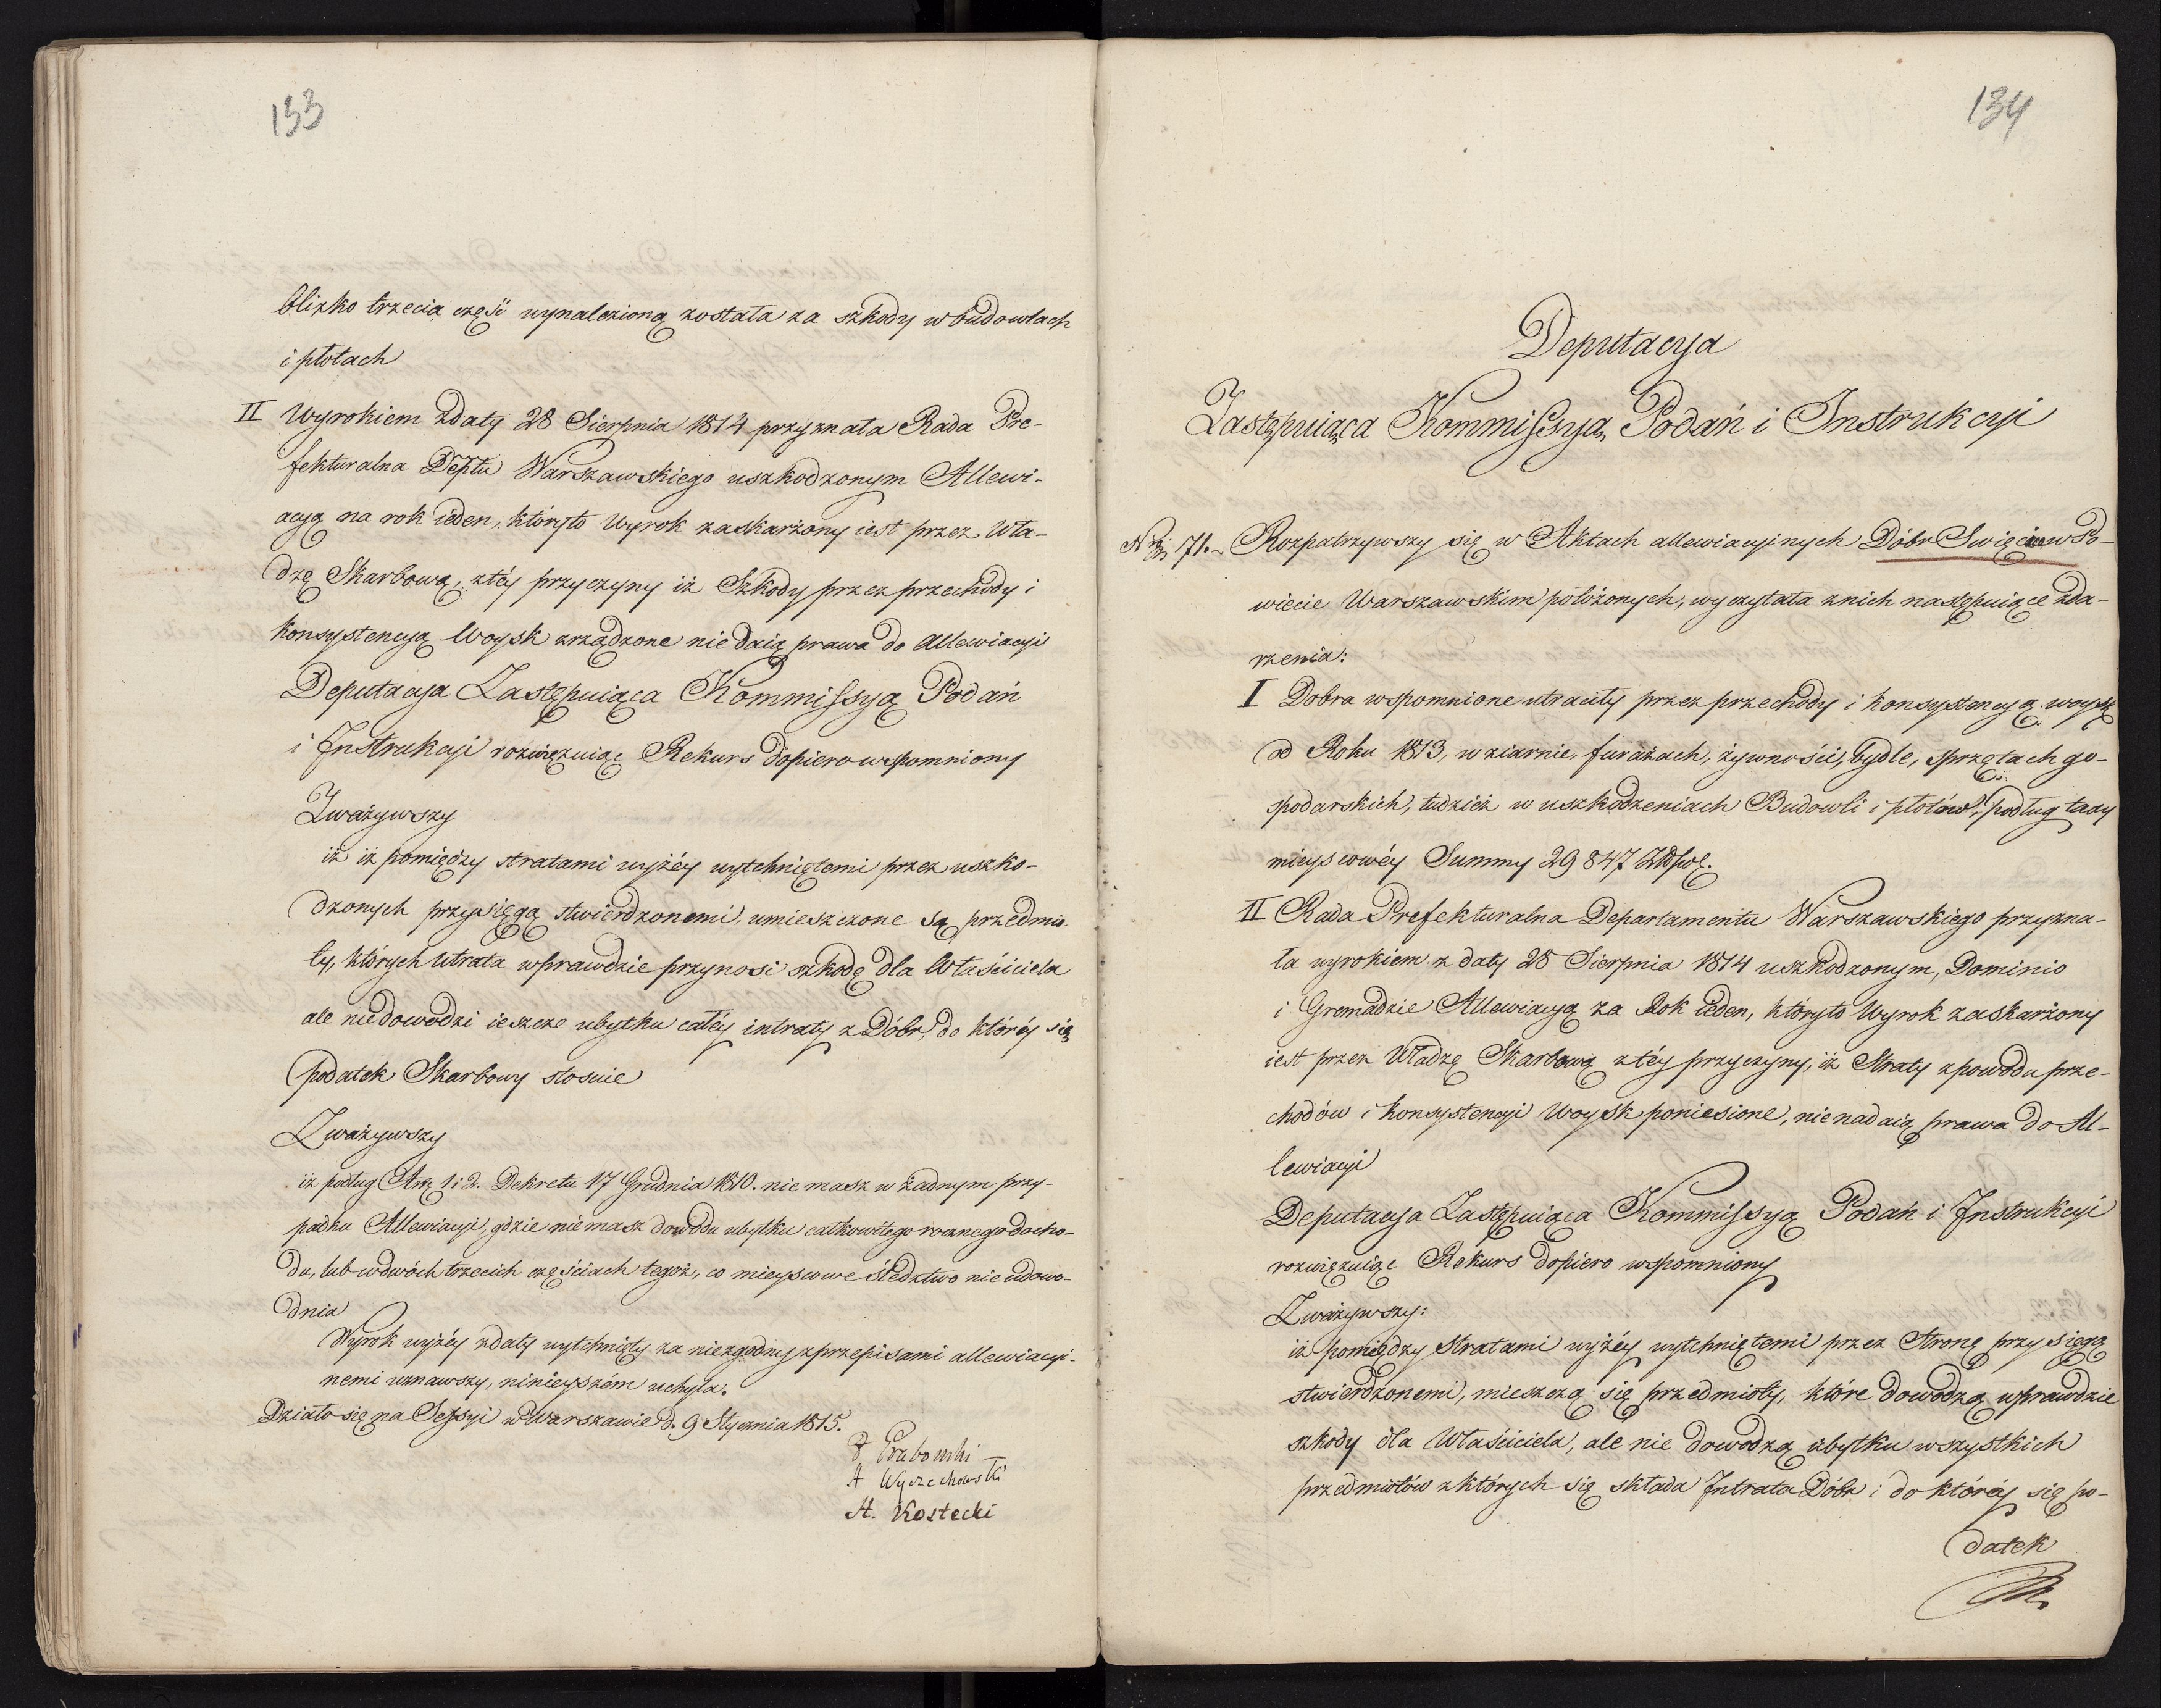 133
blizko trzecia część wynalezioną została za szkody w budowlach
i płotach
II Wyrokiem z daty 28 Sierpnia 1814 przyznała Rada Pre-
fekturalna Deptu Warszawskiego uszkodzonym Allewi-
acyą na rok ieden, któryto Wyrok zaskarżony iest przez Wła-
dzę Skarbową, z téy przyczyny iż Szkody przez przechody i
konsystencyą Woysk zrządzone nie daią prawa do Allewiacyi
Deputacya Zastępuiąca Kommissyą Podań
i Instrukcyi rozwięzuiąc Rekurs dopiero wspomniony
Zważywszy
iż iż pomiędzy stratami wyżéy wytchniętemi przez uszko-
dzonych przysięgą stwierdzonemi, umieszczone są przedmio-
ty, których utrata wprawdzie przynosi szkodę dla Właściciela
ale nie dowodzi ieszcze ubytku całéy intraty z Dóbr, do któréy się
podatek Skarbowy stosuie
Zważywszy
iż podług Art. 1 i 2. Dekretu 17 Grudnia 1810. nie masz w żadnym przy-
padku Allewiacyi, gdzie nie masz dowodu ubytku całkowitego rocznego docho-
du, lub w dwóch trzecich częściach tegoż, co mieyscowe śledztwo nie udowo-
dnia
Wyrok wyżéy z daty wytchnięty za niezgodny z przepisami allewiacyi-
nemi uznawszy, ninieyszém uchyla.
Działo się na Sessyi w Warszawie d. 9 Stycznia 1815.
F Grabowski
A Wyczechowski
A. Kostecki
134
Deputacya
Zastępuiąca Kommissyą Podań i Instrukcyi
71. Rozpatrzywszy się w Aktach allewiacyinych Dóbr w Po-
wiecie Warszawskim położonych, wyczytała z nich następuiące zda-
rzenia:
I Dobra wspomnione utraciły przez przechody i konsystencyą woysk
w Roku 1813, w ziarnie, furażach, żywności, bydle, sprzętach go-
spodarskich, tudzież w uszkodzeniach Budowli i płotów, podług taxy
mieyscowéy Summy 29847 Złłpol.
II Rada Prefekturalna Departamentu Warszawskiego przyzna-
ła wyrokiem z daty 28 Sierpnia 1814 uszkodzonym, Dominio
i Gromadzie Allewiacyą za Rok ieden, któryto Wyrok zaskarżony
iest przez Władzę Skarbową z téy przyczyny, iż Straty z powodu prze-
chodów i konsystencyi Woysk poniesione, nie nadaią prawa do Al-
lewiacyi
Deputacya Zastępuiąca Kommissyą Podań i Instrukcyi
rozwięzuiąc Rekurs dopiero wspomniony
Zważywszy:
iż pomiędzy Stratami wyżéy wytchniętemi przez Stronę przysięgą
stwierdzonemi, mieszczą się przedmioty, które dowodzą wprawdzie
szkody dla Właściciela, ale nie dowodzą ubytku wszystkich
przedmiotów z których się składa Intrata Dóbr i do któréy się po-
datek